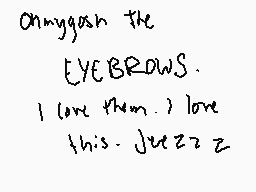 Ohmygosh the
EYEBROWS.
I love them. I love
this. Jeezzz